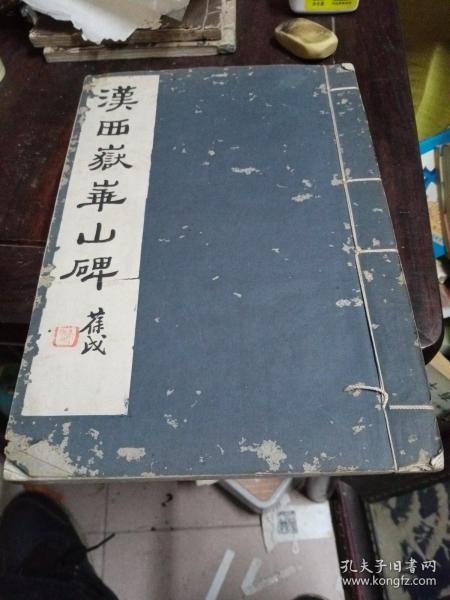 漢西嶽華山碑
葆戉
孔夫子旧书网
www.kongfz.com